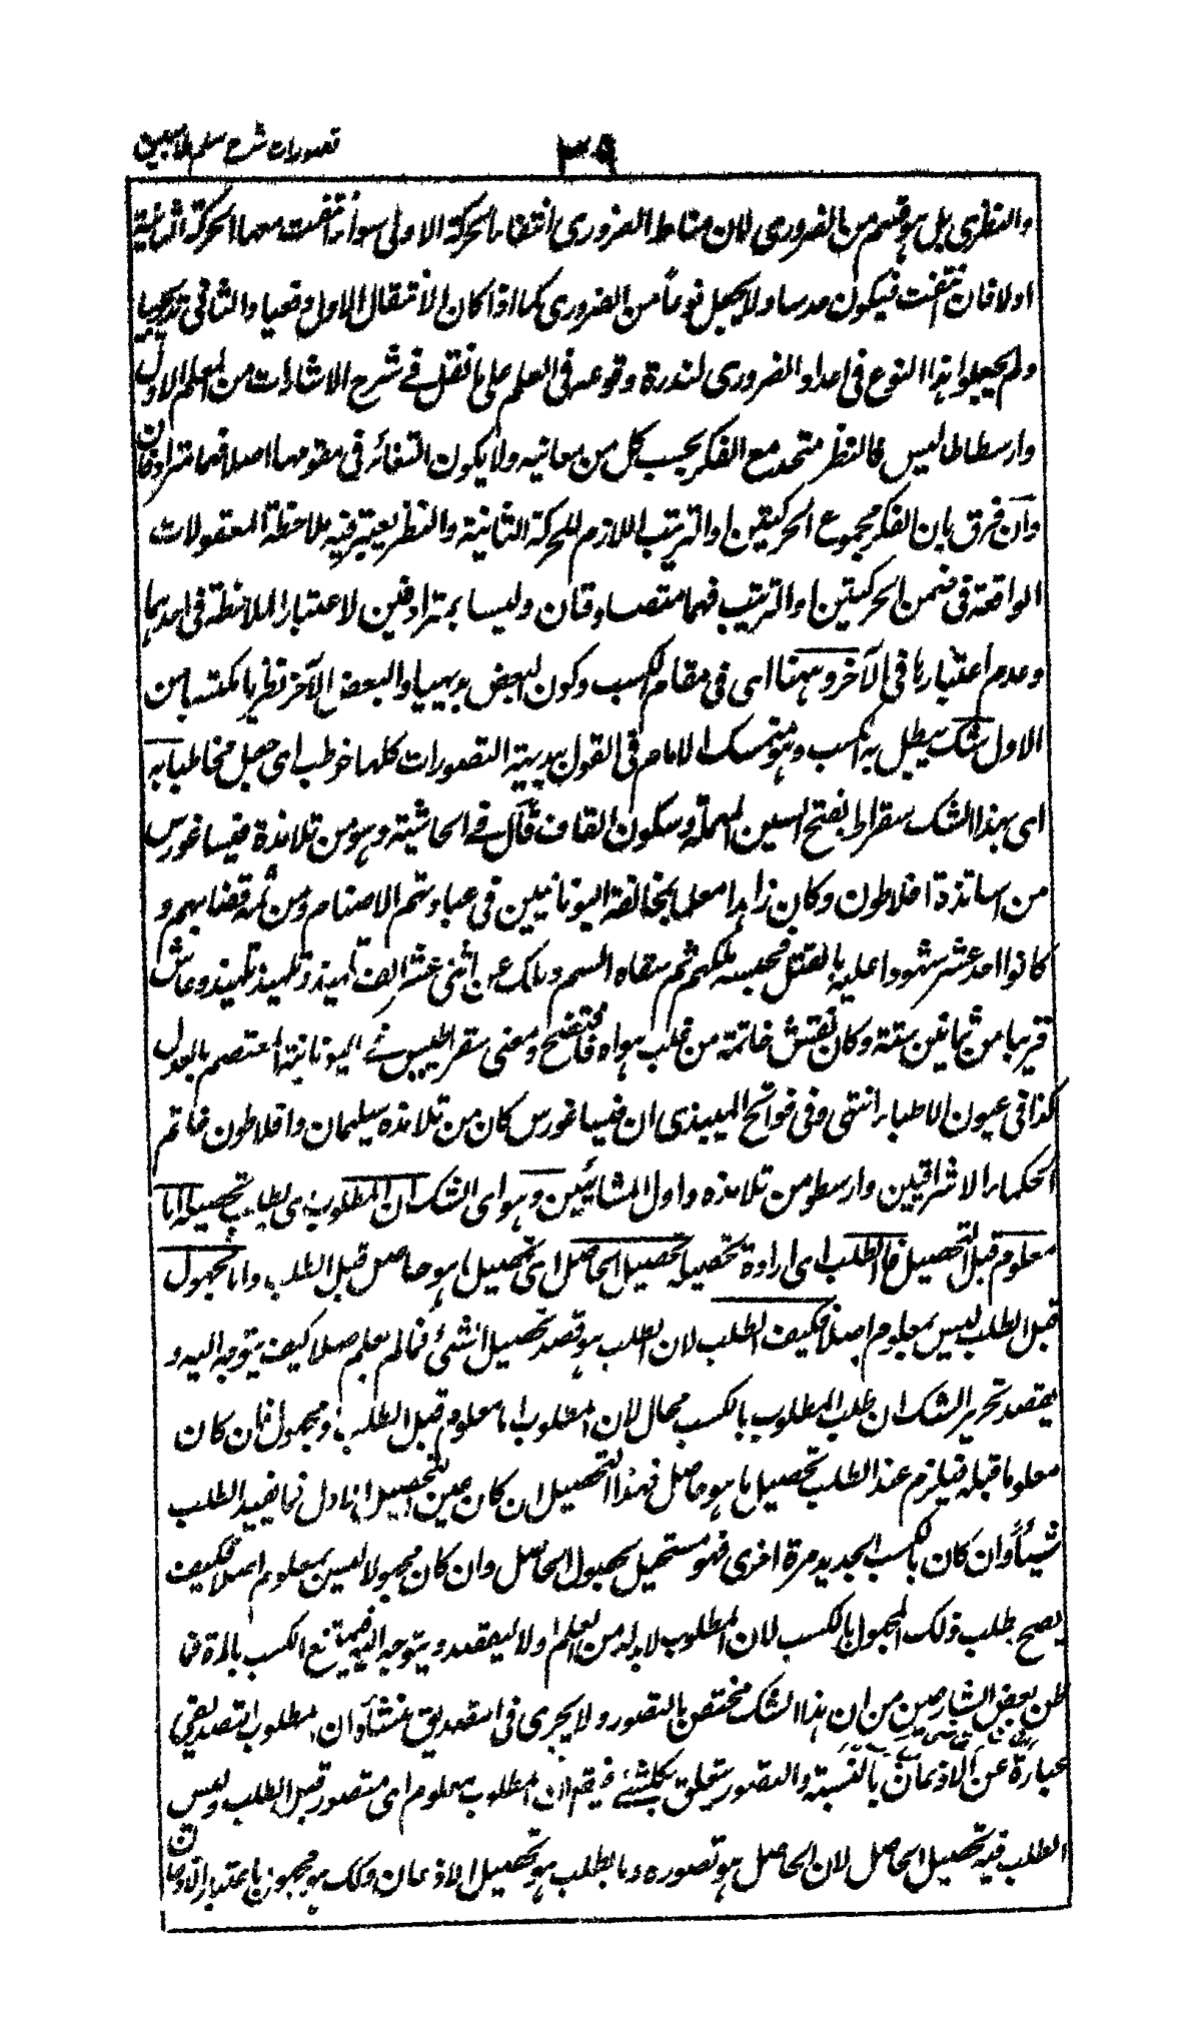 تصورات شرح سلم ملا مبین
٣٩
والنظری بل هو قسم من الضروری لان مناط الضروری انتفاء الحركة الاولی سواء انتفت معها الحركة الثانية
اولا فان انتفت فیكون حدسا ولا یجعل نوعاً من الضروری كما اذا كان الانتقال الاول دفعیا والثانی تدریجیا
ولم یجعلوا هذا النوع فی اعداد الضروری لندرة وقوعه فی العلم علی ما نقل فی شرح الاشارات من المعلم الاول
وارسطاطالیس فالنظر متحد مع الفكر بحسب كل من معانیه ولا یكون التغائر فی مفهومها اصلا فهما مترادفان
وان فرق بان الفكر مجموع الحركتین او الترتیب اللازم للحركة الثانیة والنظر یعتبر فیه ملاحظة المعقولات
الواقعة فی ضمن الحركتین او الترتیب فهما متصادقان ولیسا بمترادفین لاعتبار الملاحظة فی احدهما
وعدم اعتبارها فی الآخر وههنا ای فی مقام الكسب وكون البعض بدیهیا والبعض الآخر نظریا مكتسبا من
الاول شك یبطل به الكسب وهو متمسك الامام فی القول ببدیهیة التصورات كلها خوطب ای جعل مخاطبا به
ای بهذا الشك سقراط بفتح السین المهملة وسكون القاف قال فی الحاشیة وهو من تلامذة فیساغورس
من اساتذة افلاطون وكان زاهدا معلما بمخالفة الیونانیین فی عبادتهم الاصنام ومن ثمه قضاتهم و
كانوا احد عشر شهودا علیه بالقتل فحبسه ملكهم ثم سقاه السم وهلك عن اثنی عشر الف تلمیذ وتلمیذ تلمیذ وعاش
قریبا من ثمانین سنة وكان نقش خاتمه من غلب هواه فافتضح ومعنی سقراطیس فی الیونانیة اعتصم بالعدل
كذا فی عیون الاطباء انتهی وفی فواتح المیبذی ان فیساغورس كان من تلامذه سلیمان وافلاطون خاتم
الحكماء الاشراقیین وارسطو من تلامذه واول المشائین وهو ای الشك ان المطلوب ای لطلب تحصیله اما
معلوم قبل التحصیل فالطلب ای ارادة تحصیله تحصیل الحاصل ای تحصیل ما هو حاصل قبل الطلب واما مجهول
قبل الطلب لیس بمعلوم اصلا فكیف الطلب لان الطلب هو قصد تحصیل الشئ فما لم یعلم اصلا كیف یتوجه الیه و
یقصد تحریر الشك ان طلب المطلوب بالكسب محال لان المطلوب اما معلوم قبل الطلب او مجهول فان كان
معلوما قبله فیلزم عند الطلب تحصیل ما هو حاصل فهذا التحصیل ان كان عین التحصیل الاول فما یفید الطلب
شیئاً وان كان بالكسب الجدید مرة اخری فهو مستحیل بحصول الحاصل وان كان مجهولا لیس بمعلوم اصلا فكیف
یصح طلب ذلك المجهول بالكسب لان المطلوب لا بد له من العلم اولا لیقصد ویتوجه الیه فیمتنع الكسب بالمرة فما
ظن بعض الشارحین من ان هذا الشك مختص بالتصور ولا یجری فی التصدیق فمنشأه ان مطلوب التصدیقی
عبارة عن الاذعان بالنسبة والتصور یتعلق بكل شئ فیقع ان المطلوب معلوم ای متصور قبل الطلب ولیس
الطلب فیه تحصیل الحاصل لان الحاصل هو تصوره وما یطلب هو تحصیل الاذعان وذلك هو مجهول باعتبار الاذعان